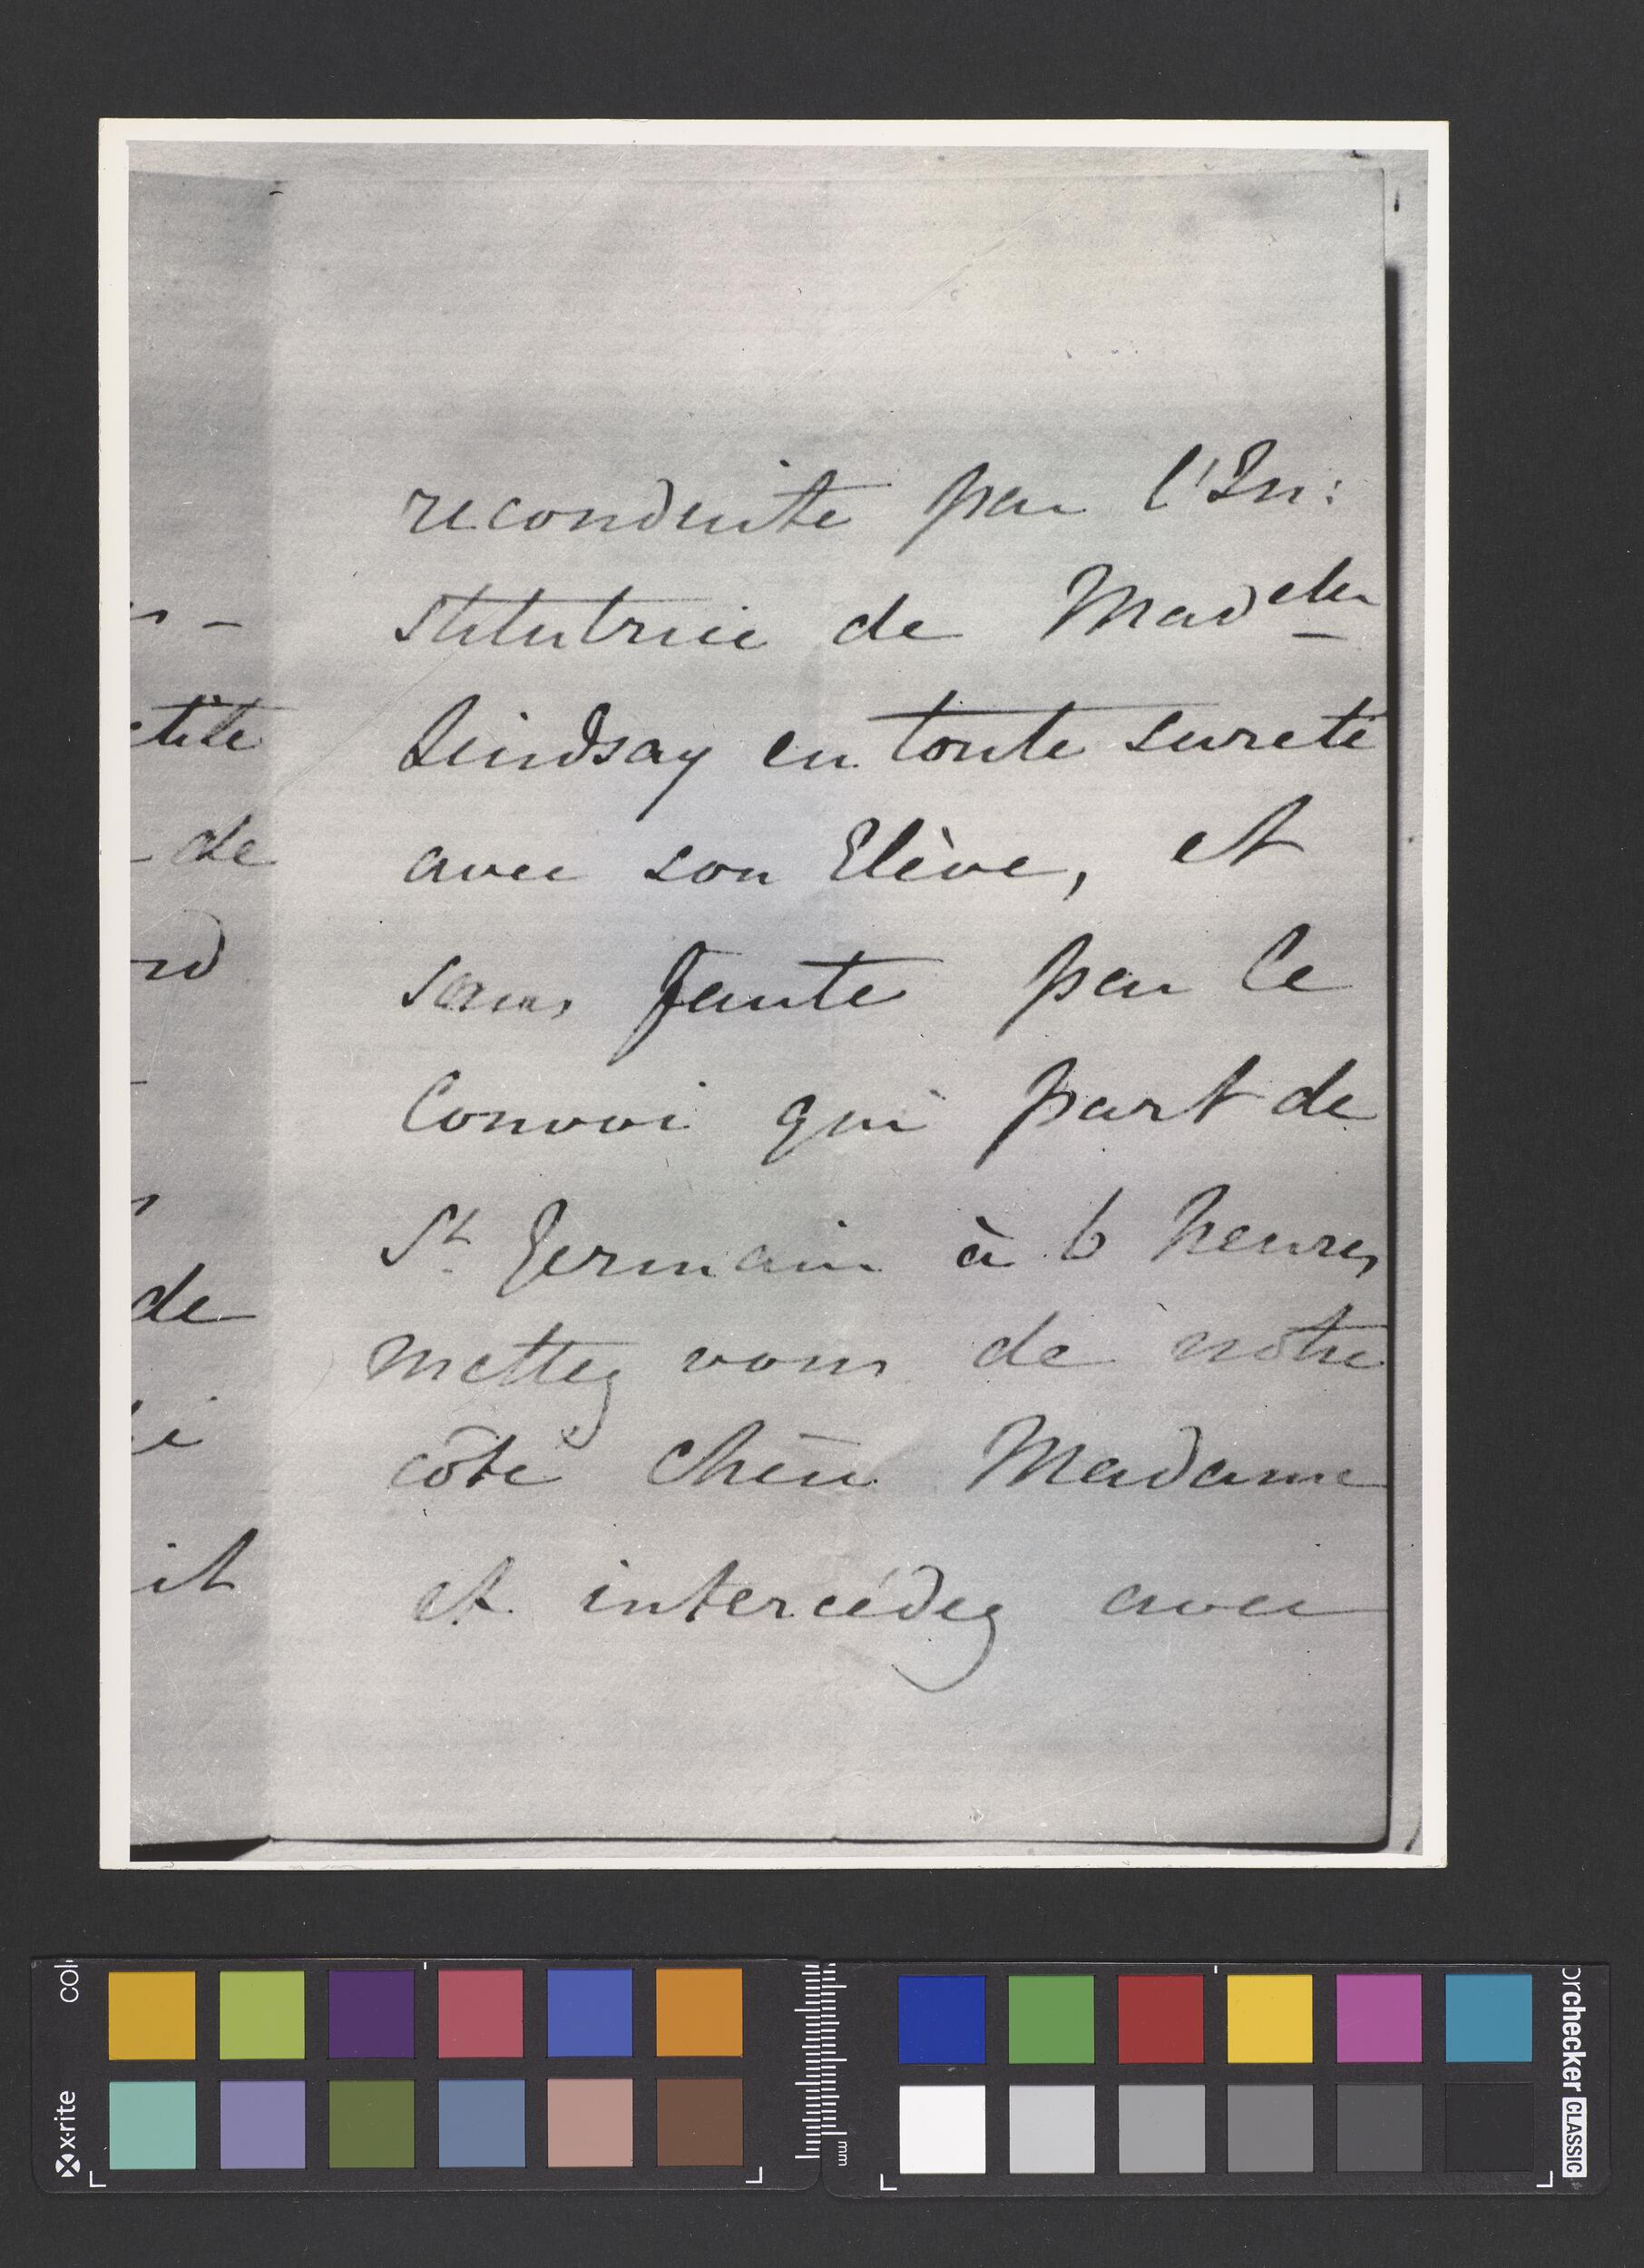 reconduite par l'In:
stitutrice de Mad^elle
Lindsay en toute sureté
avec son Elève, et
sans faute par le
Convoi qui part de
St Germain à 6 heures,
mettez vous de notre
côté chère Madame
et intercédez avec
de
de
it
x-rite
colo
mm
orchecker CLASSIC